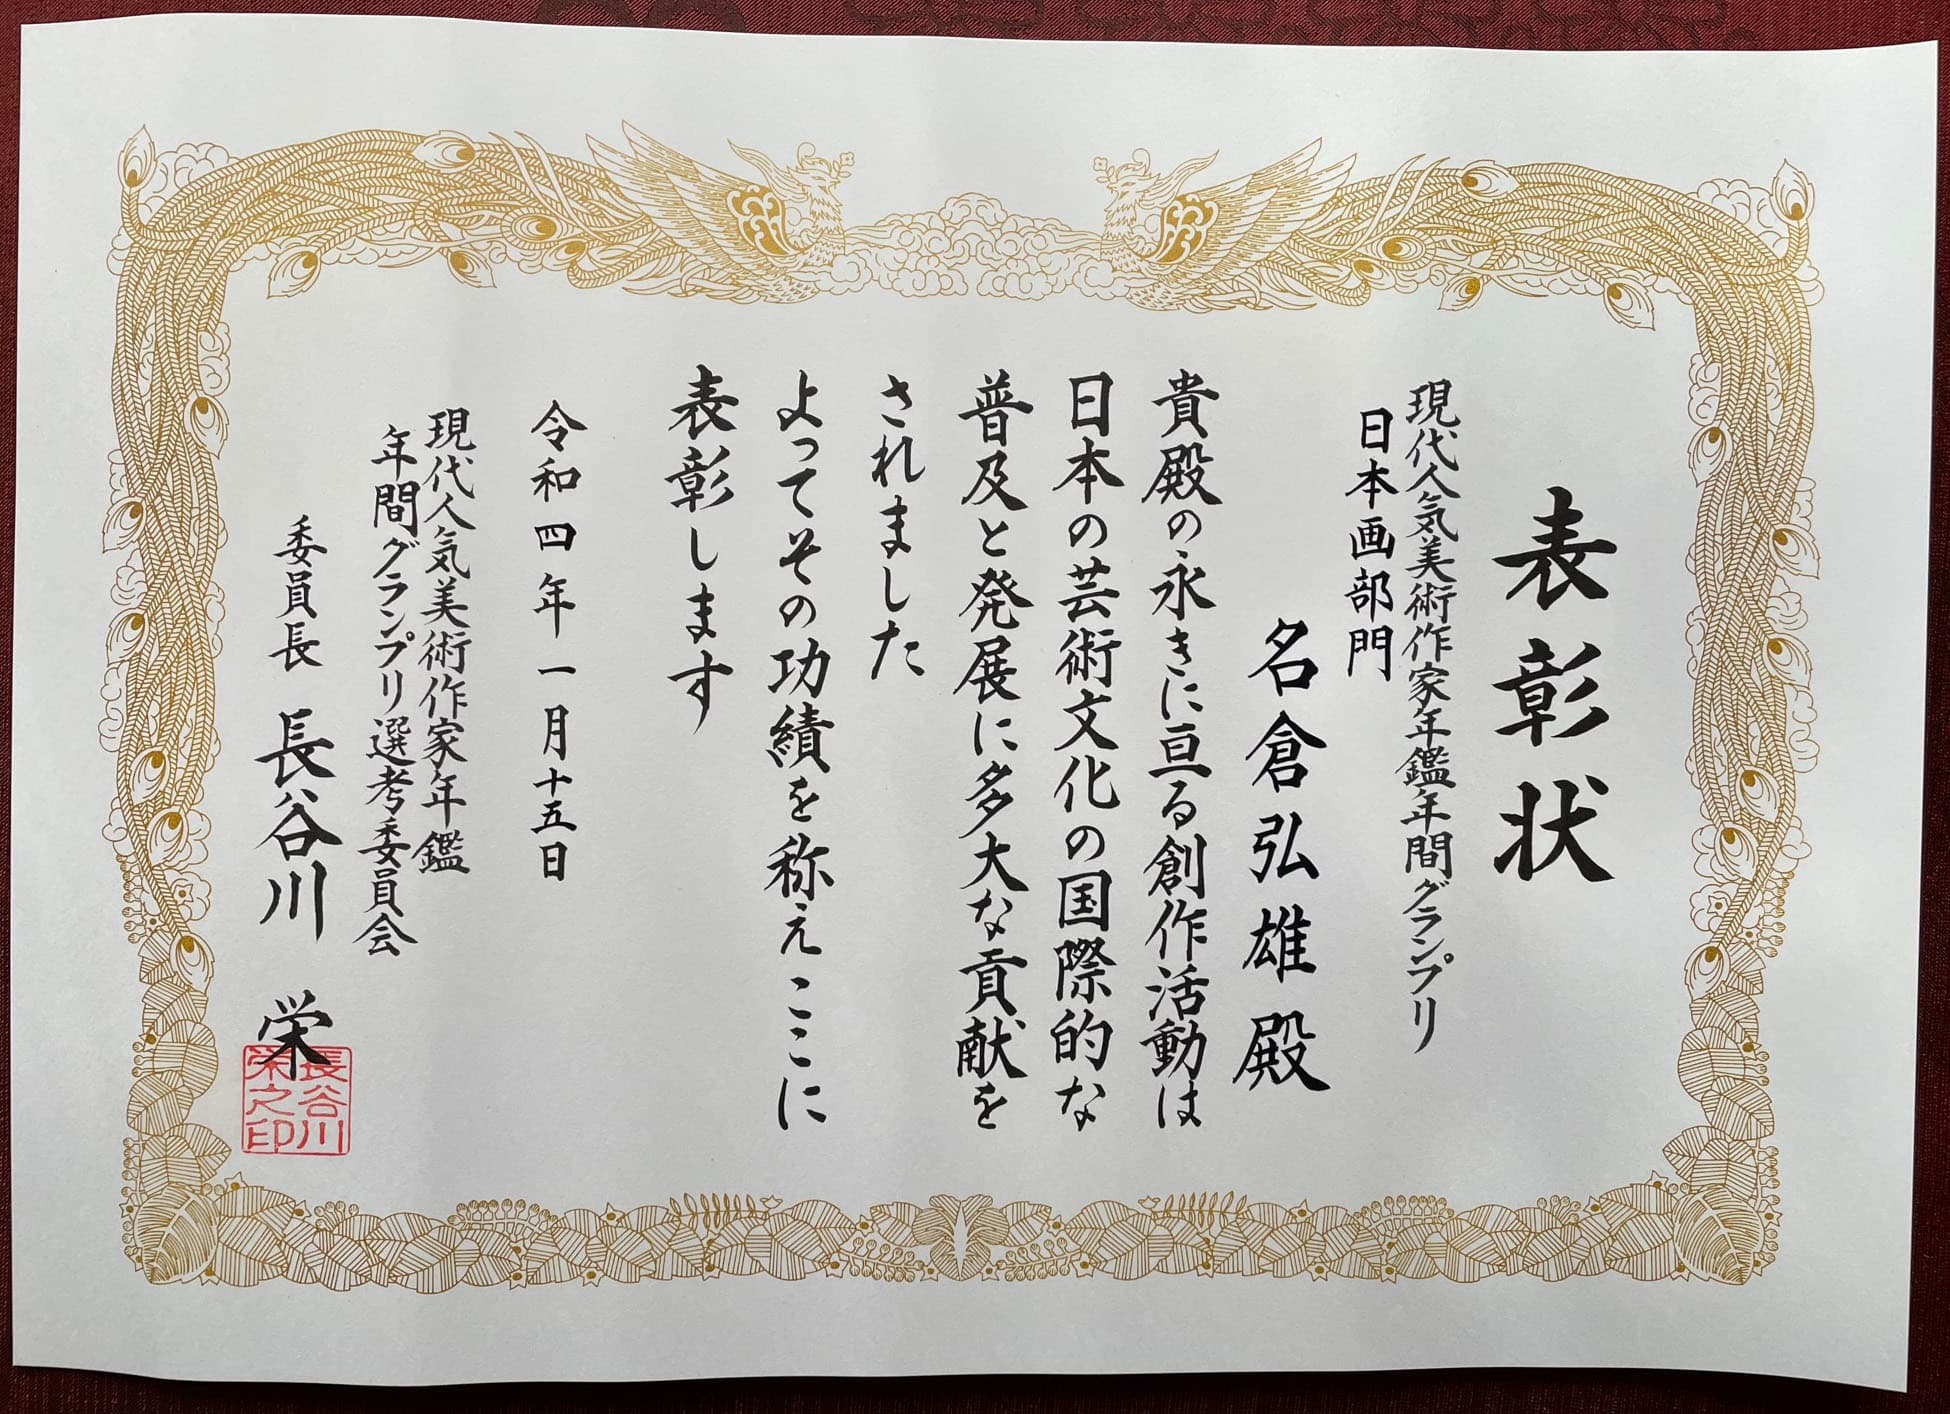 表彰状
現代人気美術作家年鑑年間グランプリ
日本画部門
名倉弘雄殿
貴殿の永きに亘る創作活動は
日本の芸術文化の国際的な
普及と発展に多大な貢献を
されました
よってその功績を称えここに
表彰します
令和四年一月十五日
現代人気美術作家年鑑
年間グランプリ選考委員会
委員長 長谷川 栄
長谷川
栄之印